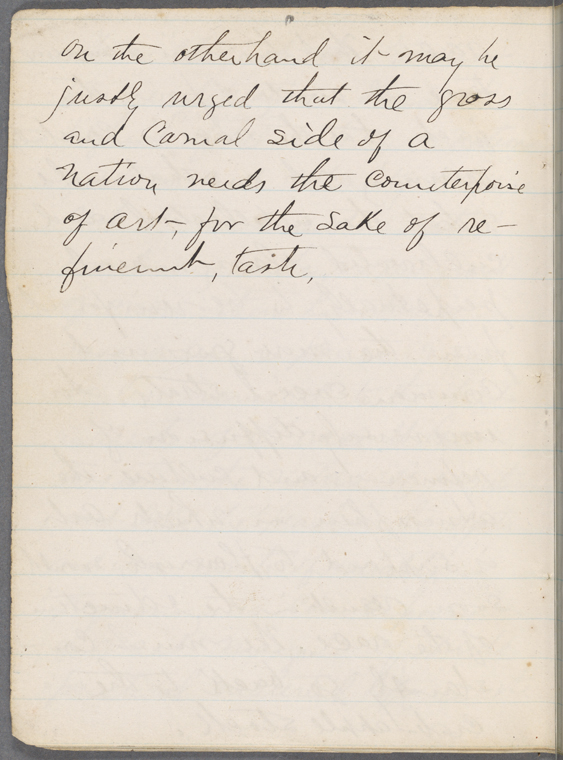 on the otherhand it may be
justly urged that the gross
and Carnal side of a
nation needs the counterpoise
of art, for the sake of re-
finement, taste,